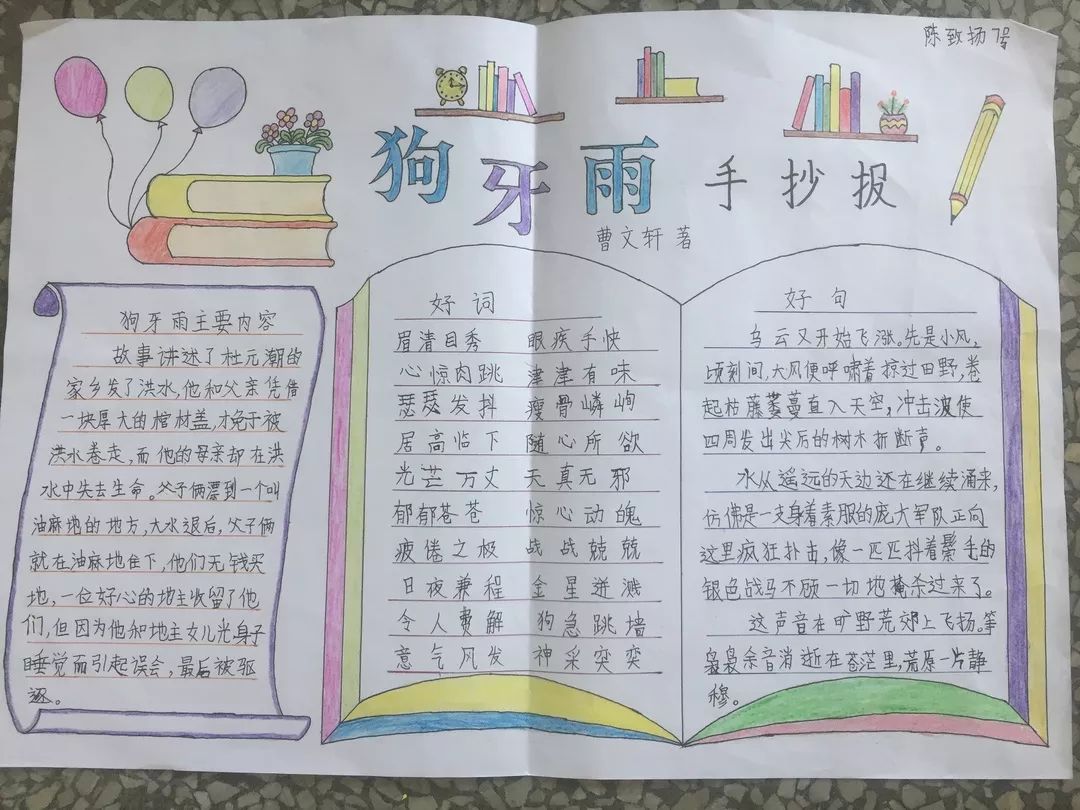 陈致扬 7号
狗牙雨 手抄报
曹文轩 著
狗牙雨主要内容
故事讲述了杜元潮的
家乡发了洪水,他和父亲凭借
一块厚大的棺材盖,才免于被
洪水卷走,而他的母亲却在洪
水中失去生命。父子俩漂到一个叫
油麻地的地方,大水退后,父子俩
就在油麻地住下,他们无钱买
地,一位好心的地主收留了他
们,但因为他和地主女儿光身子
睡觉而引起误会,最后被驱
逐。
好词
眉清目秀 眼疾手快
心惊肉跳 津津有味
瑟瑟发抖 瘦骨嶙峋
居高临下 随心所欲
光芒万丈 天真无邪
郁郁苍苍 惊心动魄
疲倦之极 战战兢兢
日夜兼程 金星迸溅
令人费解 狗急跳墙
意气风发 神采奕奕
好句
乌云又开始飞涨。先是小风,
顷刻间,大风便呼啸着掠过田野,卷
起枯藤蔓直入天空,冲击波使
四周发出尖后的树木折断声。
水从遥远的天边还在继续涌来,
仿佛是一支身着素服的庞大军队正向
这里疯狂扑击,像一匹匹抖着鬃毛的
银色战马不顾一切地掩杀过来了。
这声音在旷野荒郊上飞扬。等
袅袅余音消逝在苍茫里,荒原一片静
穆。